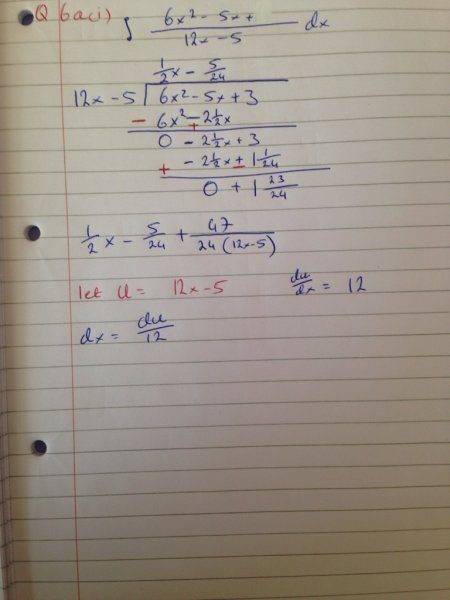 Q 6a(i) ∫ (6x² - 5x +)/(12x - 5) dx
½x - 5/24
12x - 5 √6x² - 5x + 3
- 6x² - 2½x
+
0 - 2½x + 3
- 2½x + 1 1/24
+ -
0 + 1 23/24
½x - 5/24 + 47/(24(12x-5))
let u = 12x - 5 du/dx = 12
dx = du/12